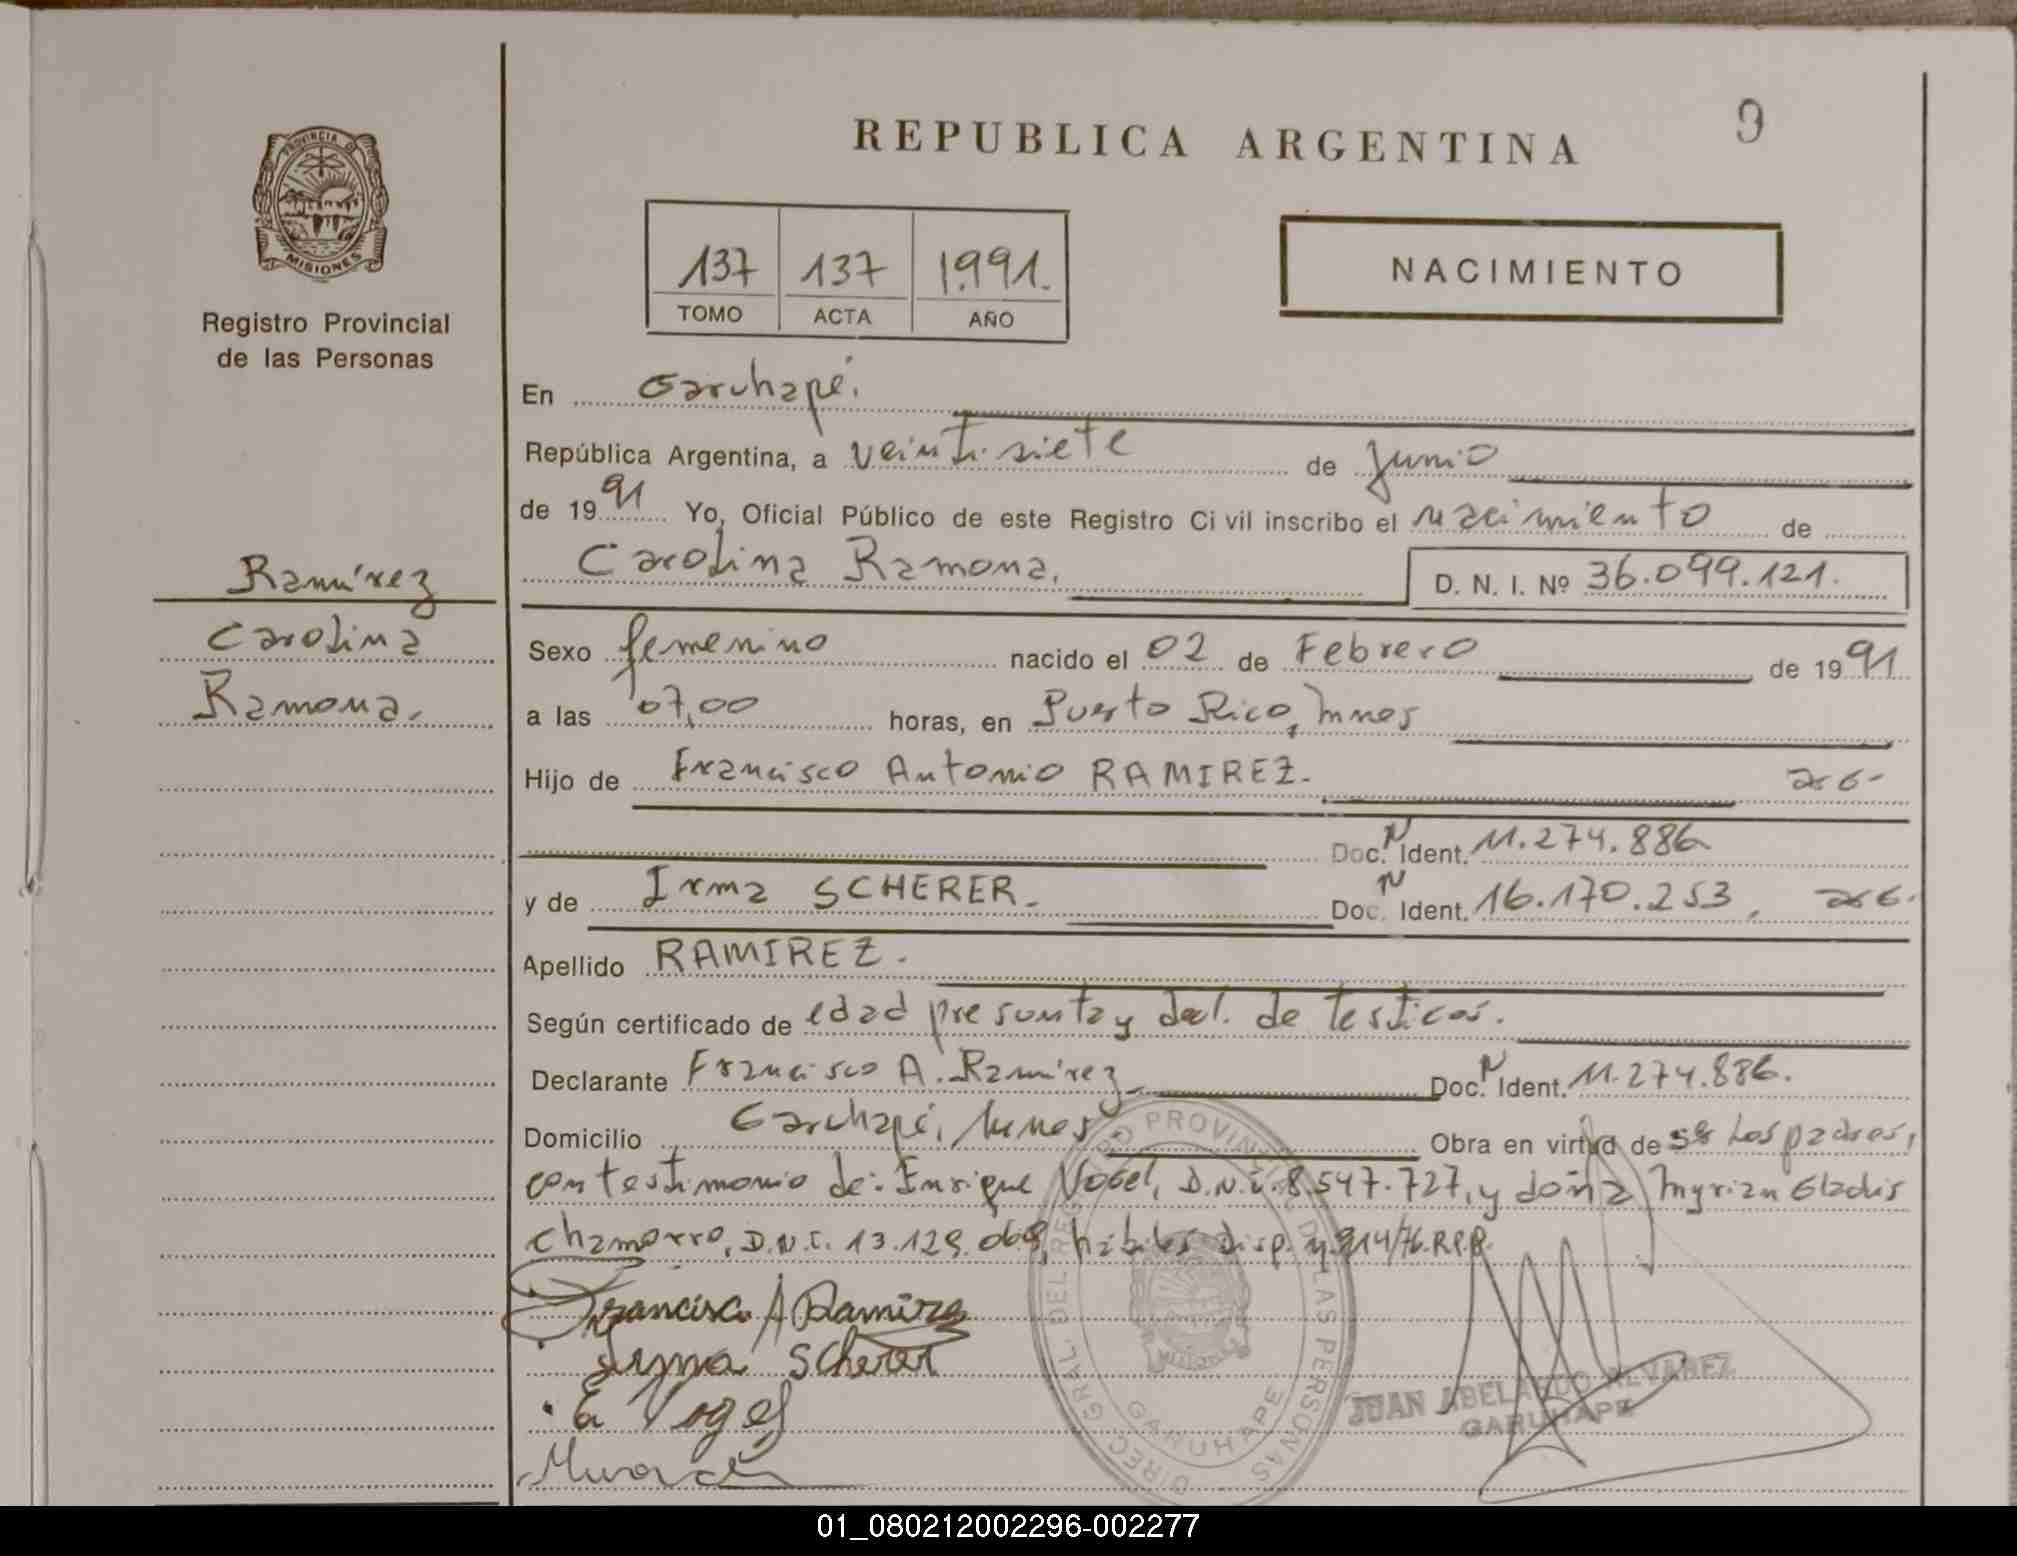 9
REPUBLICA ARGENTINA
PROVINCIA D
MISIONES
Registro Provincial
de las Personas
137 137 1.991.
TOMO ACTA AÑO
NACIMIENTO
En Garuhapé.
República Argentina, a veintisiete de Junio
de 1991 Yo, Oficial Público de este Registro Ci vil inscribo el nacimiento de
Carolina Ramona. D. N. I. Nº 36.099.121.
Ramírez
Carolina
Ramona.
Sexo femenino nacido el 02 de Febrero de 1991
a las 07,00 horas, en Puerto Rico, Mnes
Hijo de Francisco Antonio RAMIREZ. arg-
Doc. N Ident. 11.274.886
y de Irma SCHERER. Doc. N Ident. 16.170.253, arg.
Apellido RAMIREZ.
Según certificado de edad presunta y decl. de testigos.
Declarante Francisco A. Ramírez Doc. N Ident. 11.274.886.
Domicilio Garuhapé, Mnes Obra en virtud de ser los padres,
con testimonio de: Enrique Vogel, D.N.I. 8.547.727, y doña Myrian Gladis
Chamorro, D.N.I. 13.129.069, hábiles disp. 914/76.R.P.P.
Francisco A Ramirez
Irma Scherer
E Vogel
DIREC. GRAL DEL REGISTRO PROVINCIAL DE LAS PERSONAS
GARUHAPE
JUAN ABELARDO ALVAREZ
GARUHAPE
01_080212002296-002277